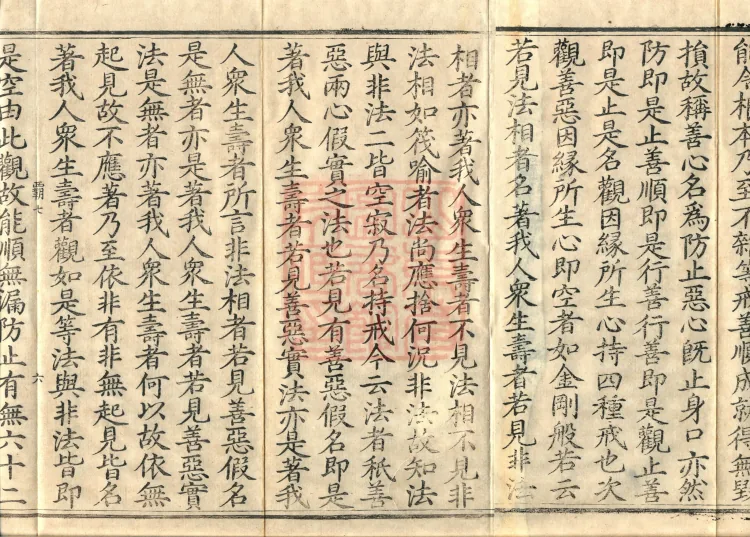 能令相本乃至不雜等戒善順成就得無毀
損故稱善心名為防止惡心既止身口亦然
防即是止善順即是行善行善即是觀止善
即是止是名觀因緣所生心持四種戒也次
觀善惡因緣所生心即空者如金剛般若云
若見法相者名著我人衆生壽者若見非法
相者亦著我人衆生壽者不見法相不見非
法相如筏喻者法尚應捨何況非法故知法
與非法二皆空寂乃名持戒今云法者秖善
惡兩心假實之法也若見有善惡假名即是
著我人衆生壽者若見善惡實法亦是著我
人衆生壽者所言非法相者若見善惡假名
是無者亦是著我人衆生壽者若見善惡實
法是無者亦著我人衆生壽者何以故依無
起見故不應著乃至依非有非無起見皆名
著我人衆生壽者觀如是等法與非法皆即
霸七 六
是空由此觀故能順無漏防止有無六十二